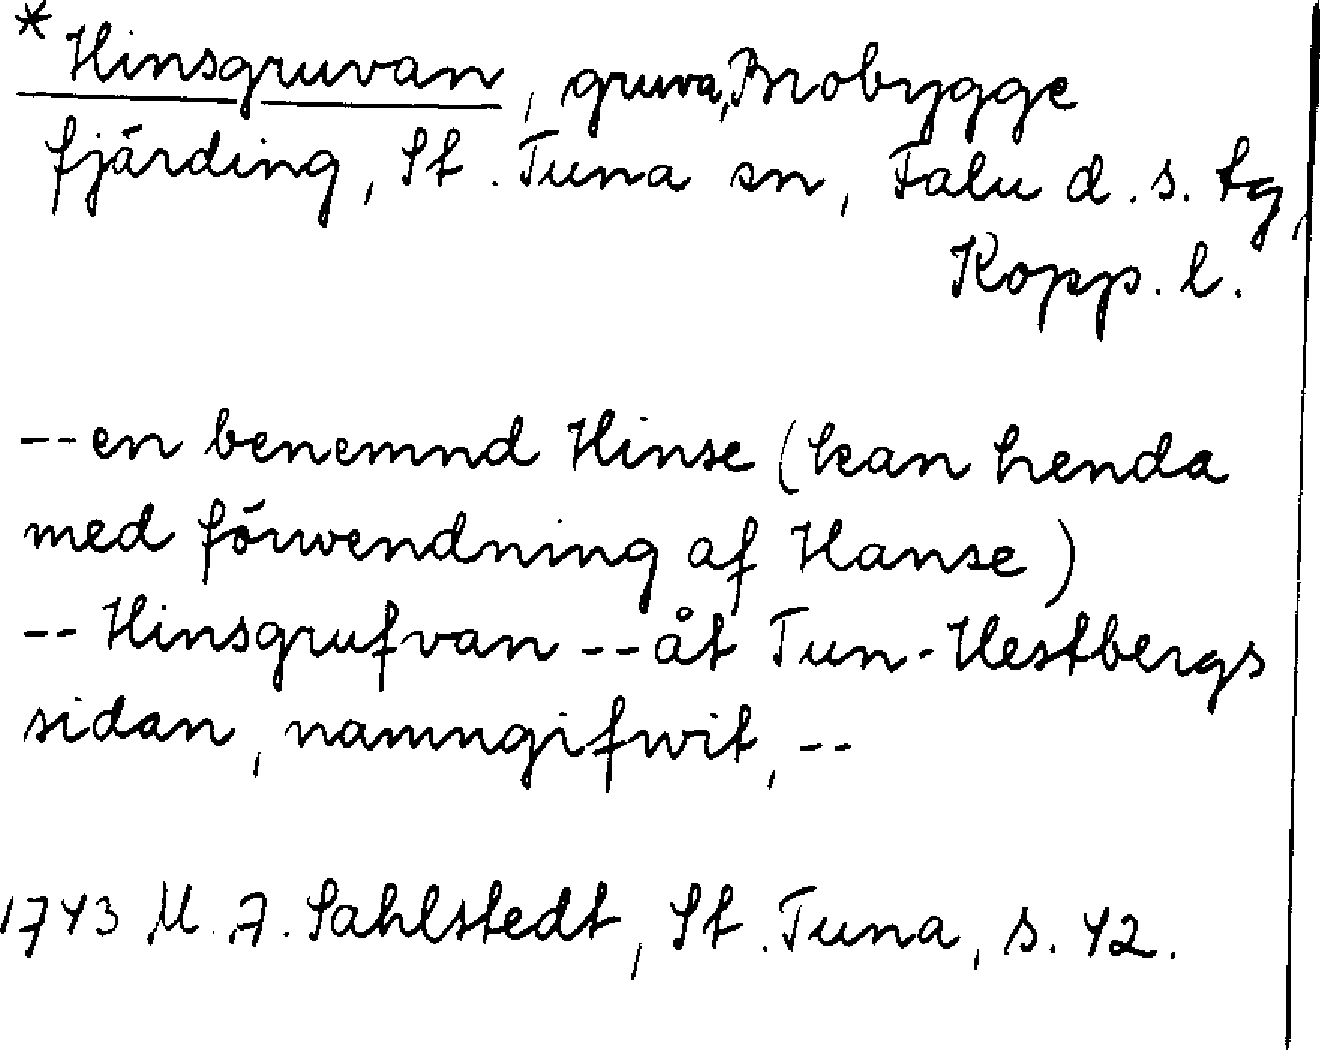 * Hinsgruvan, gruva, Brobygge
fjärding, St. Tuna sn, Falu d. s. tg,
Kopp. l.
-- en benemnd Hinse (kan henda
med förwendning af Hanse)
-- Hinsgrufvan -- åt Tun-Hestbergs
sidan, namngifwit, --
1743 M. A. Sahlstedt, St. Tuna, s. 42.